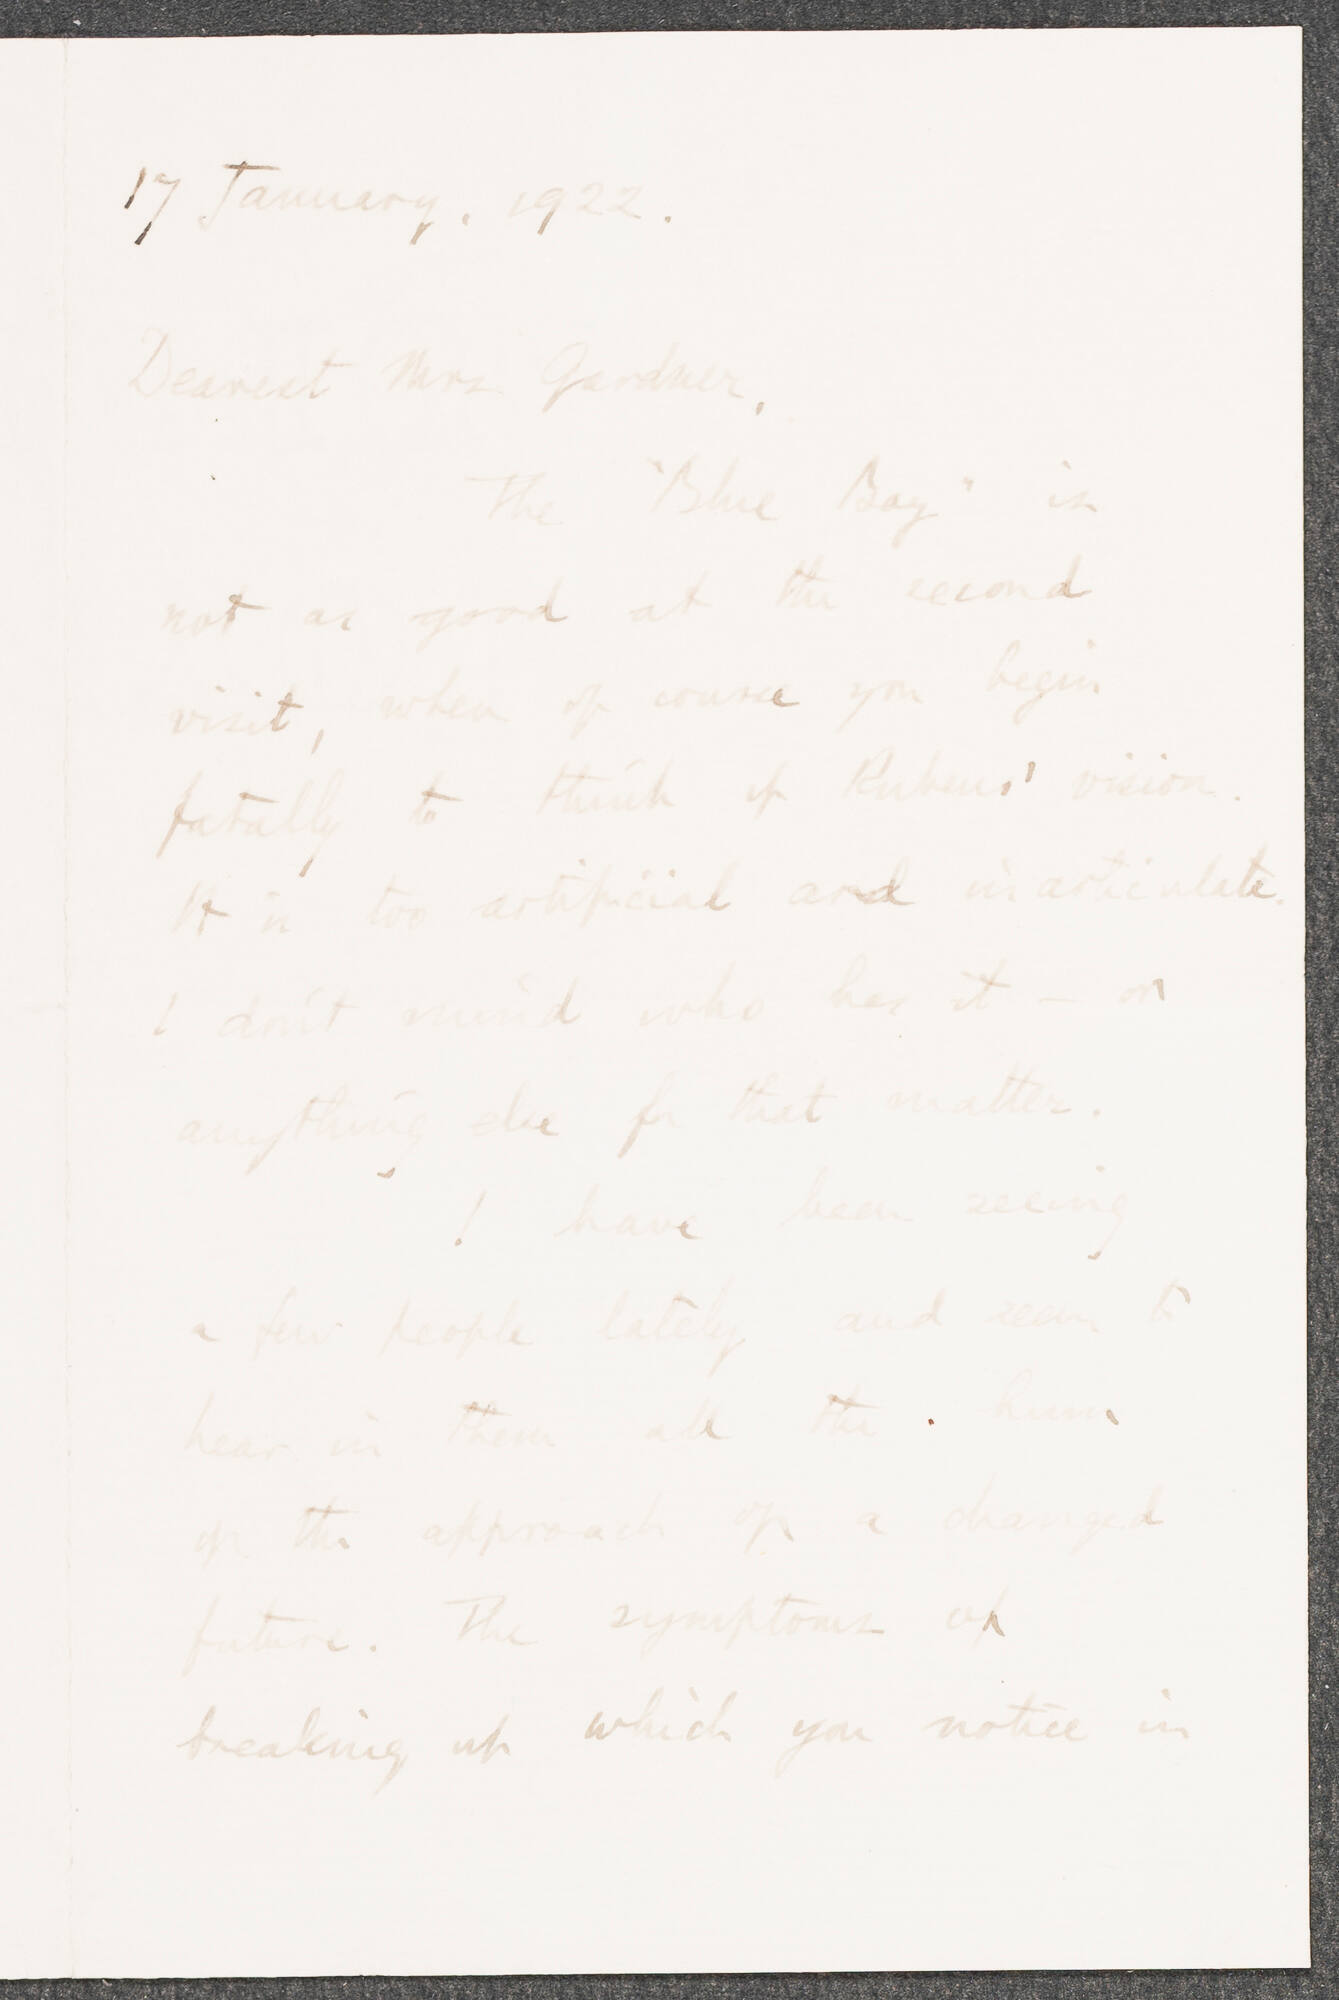 17 January. 1922.
Dearest Mrs Gardner,
The "Blue Boy" is
not as good at the second
visit, when of course you begin
fatally to think of Rubens' vision.
It is too artificial and inarticulate.
I don't mind who has it – or
anything else for that matter.
I have been seeing
a few people lately and seem to
hear in them all the hum
of the approach of a changed
future. The symptoms of
breaking up which you notice in